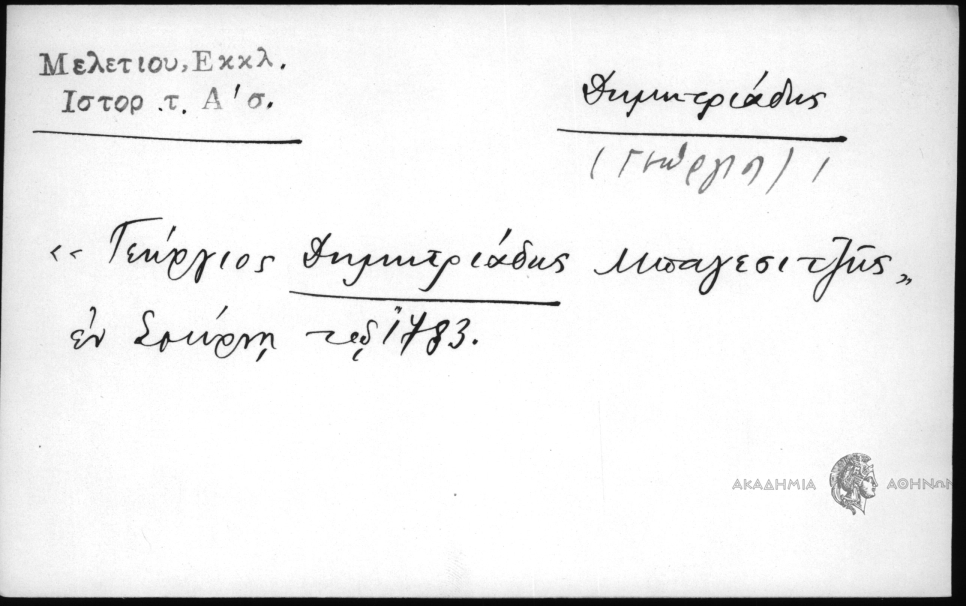 Μελετιου, Εκκλ.
Ιστορ .τ. Α' σ.
Δημητριάδης
(Γεώργιος)
«Γεώργιος Δημητριάδης Μπαγεσιτζῆς»
ἐν Σμύρνῃ τῷ 1783.
ΑΚΑΔΗΜΙΑ ΑΘΗΝΩΝ